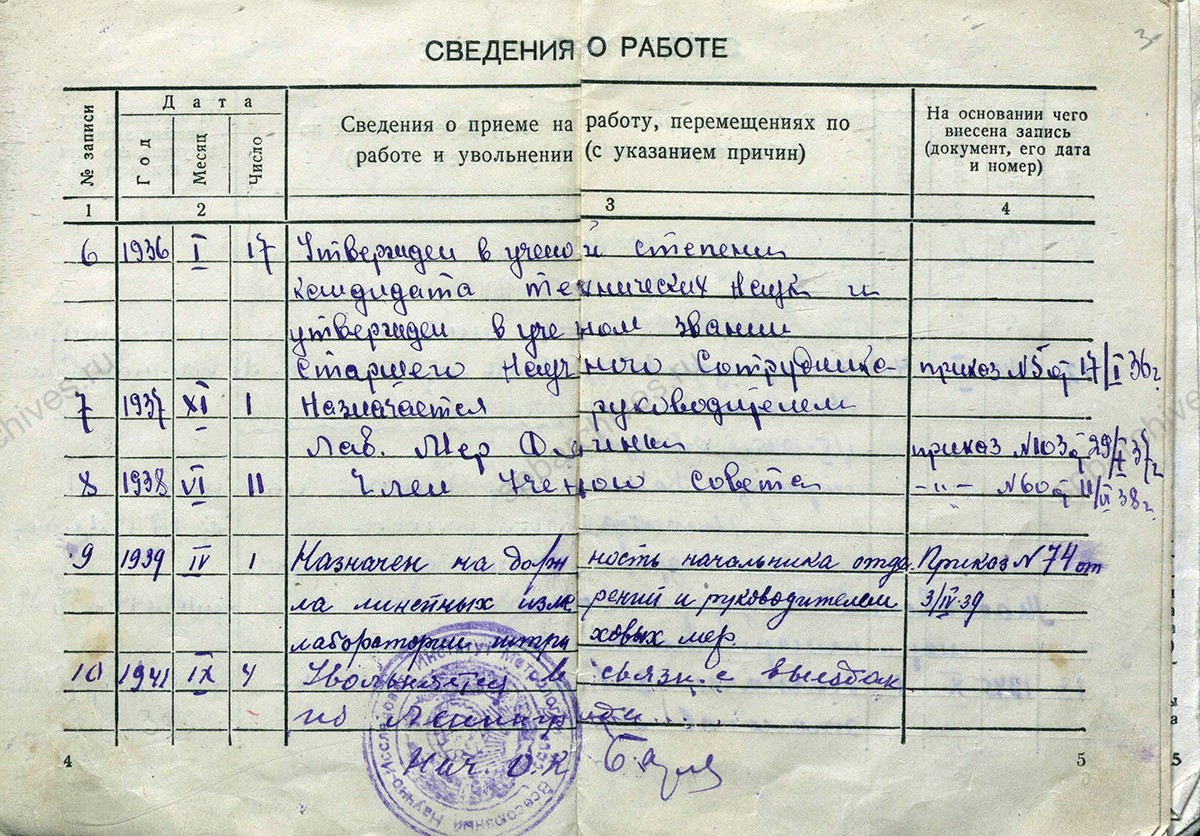 3
СВЕДЕНИЯ О РАБОТЕ
№ записи
Дата
Год
Месяц
Число
Сведения о приеме на работу, перемещениях по
работе и увольнении (с указанием причин)
На основании чего
внесена запись
(документ, его дата
и номер)
1 2 3 4
6 1936 I 17 Утвержден в ученой степени
кандидата технических наук и
утвержден в ученом звании
Старшего Научного Сотрудника приказ N5 от 17/I 36г.
7 1937 XI 1 Назначается руководителем
Лаб. Мер Длины приказ N103 от 29/X 37г.
8 1938 VI 11 Член Ученого Совета -"- N60 от 11/VI 38г.
9 1939 IV 1 Назначен на должность начальника отде- Приказ N74 от
ла линейных измерений и руководителем 3/IV-39
лаборатории штриховых мер.
10 1941 IX 4 Увольняется в связи с выездом
из Ленинграда.
Нач. О.К.
Всесоюзный Научно-Исследов Институт Метрологии
4
5
5